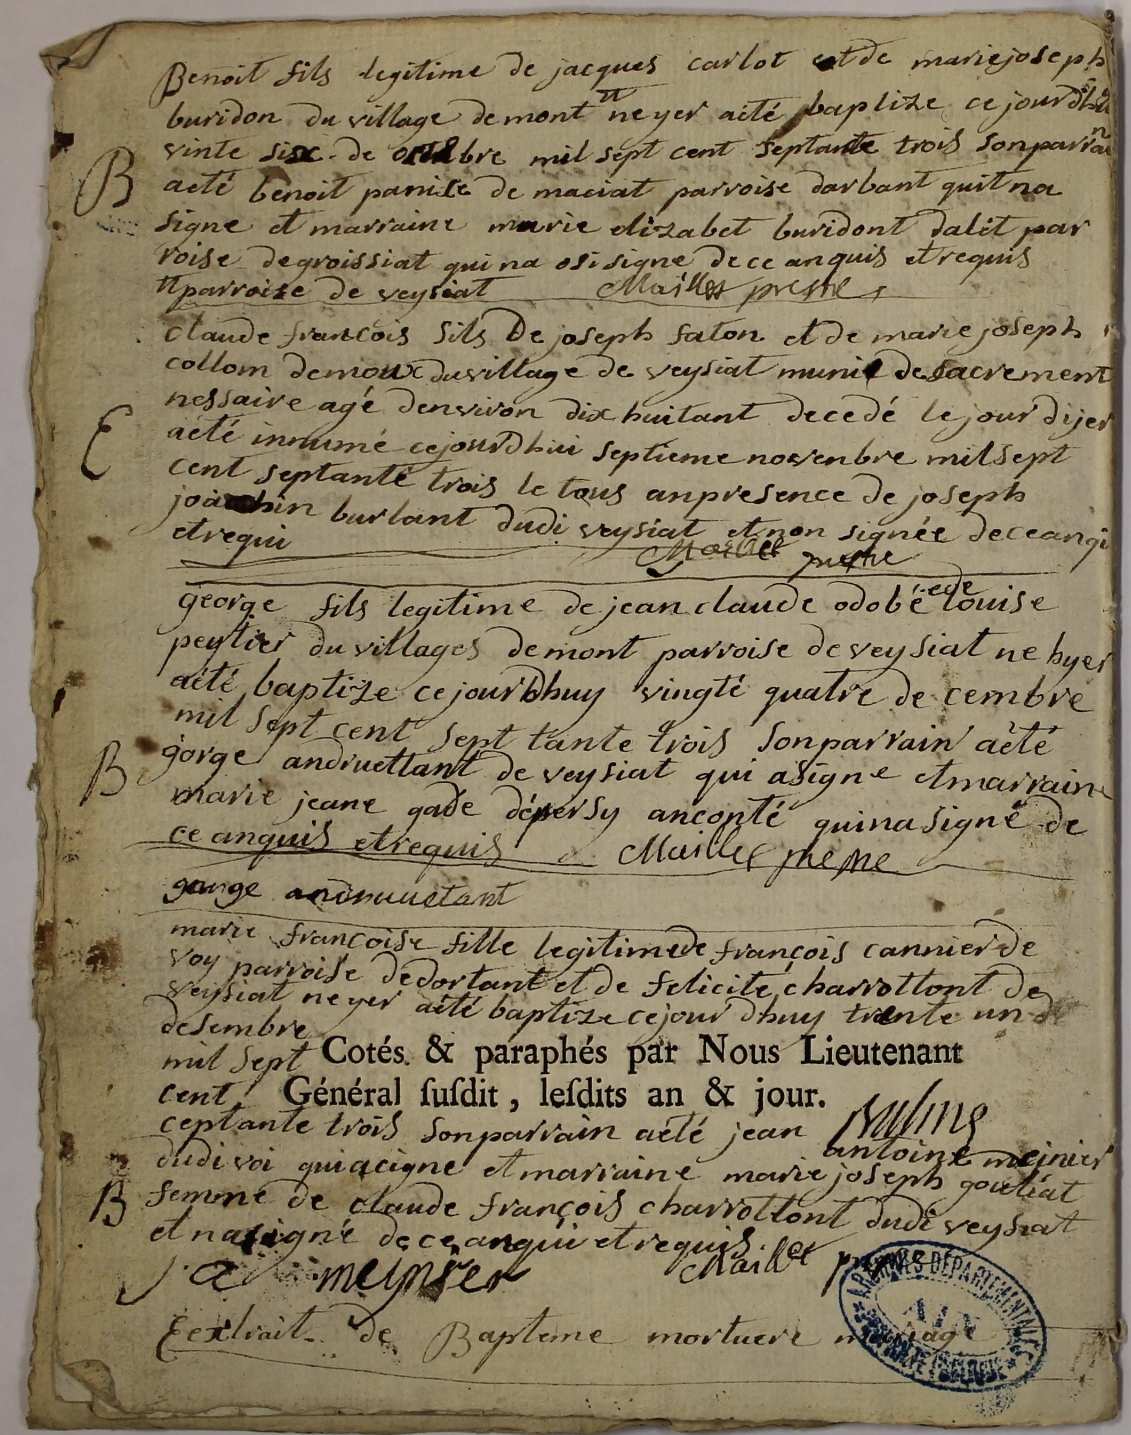 Benoit fils legitime de jacques carlot et de mariejoseph
buridon du village de mont tt ne yer aeté baptize ce jourdhui
B
vinte six de octobre mil sept cent septante trois sonparrain
aeté benoit panise de maciat parroise darbant quit na
signe et marraine marie elizabet buridont dalet par
roise de groissiat qui na osi signe de ce anquis et requis
tt parroise de veysiat Maillet prestre
claude françois fils De joseph falon et de marie joseph
collom demoux du village de veysiat munie de sacrement
E
nessaire agé denviron dix huitant decedé le jour dijer
aété innumé cejourdhui septieme novenbre mil sept
cent septante trois le tous anpresence de joseph
joachin burlant dudi veysiat et non signée de ce anqi
et requi Maillet prestre
george fils legitime de jean claude odobé ede louise
peytier du villages de mont parroise de veysiat ne hyer
aété baptize ce jourdhuy vingté quatre de cembre
mil sept cent sept tante trois sonparrain aèté
B
gorge andruettant de veysiat qui asigne et marraine
marie jeane gade dépersy anconté quinasigné de
ce anquis et requis Maillet prestre
gorge andruuetant
marie françoise fille legitimede françois cannier de
voy parroise dedortant et de felicité charrottont de
veysiat neyer aété baptize cejour dhuy trente un de
desembre
mil sept
Cotés & paraphés par Nous Lieutenant
cent
Général ſuſdit, leſdits an & jour.
ceptante trois sonparrain aété jean antoine meinier
dudi voi qui acigne et marraine marie joseph goutiat
B
femme de claude françois charrottont dudi veysiat
et nasigné de ce anqui et requis Maillet
j a meynier
Eextrait de Bapteme mortuere mariage
ARCHIVES DÉPARTEMENTALES
AIN